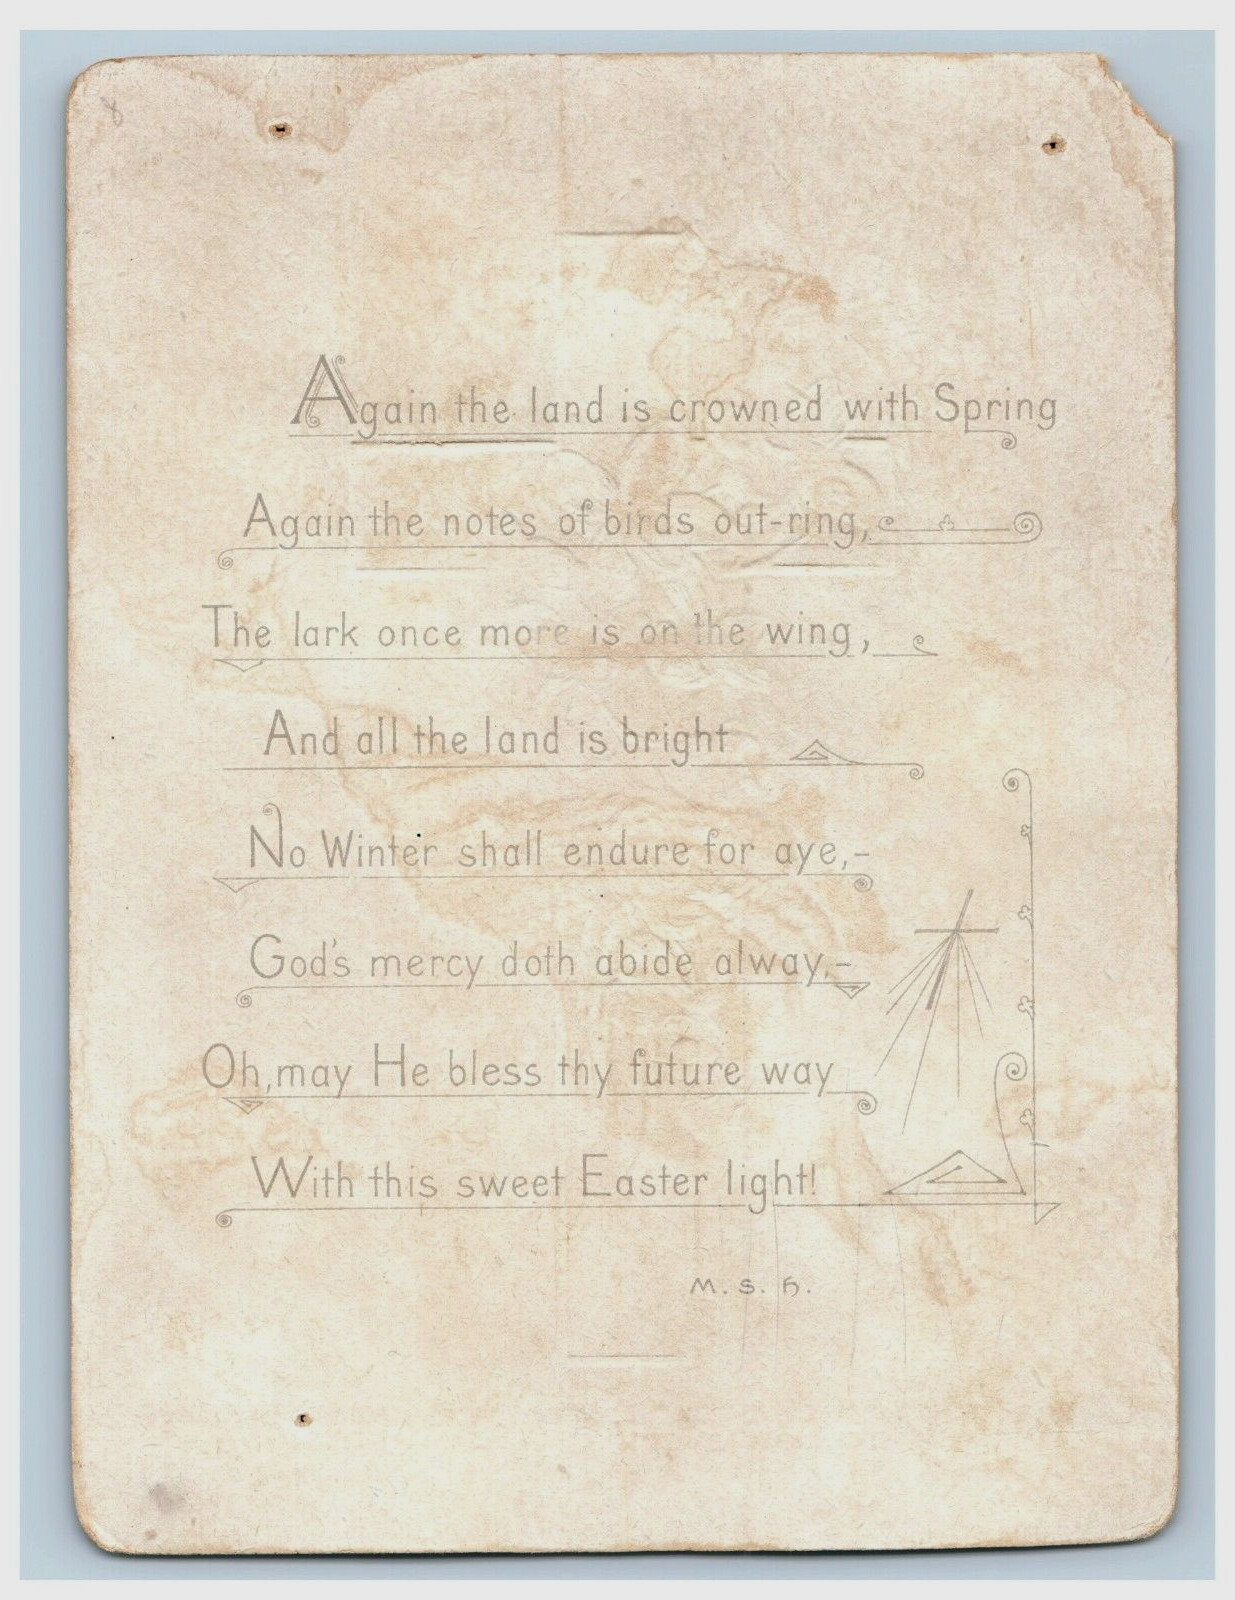 8
Again the land is crowned with Spring
Again the notes of birds out-ring,
The lark once more is on the wing,
And all the land is bright
No Winter shall endure for aye,-
God's mercy doth abide alway,-
Oh, may He bless thy future way
With this sweet Easter light!
M. S. H.